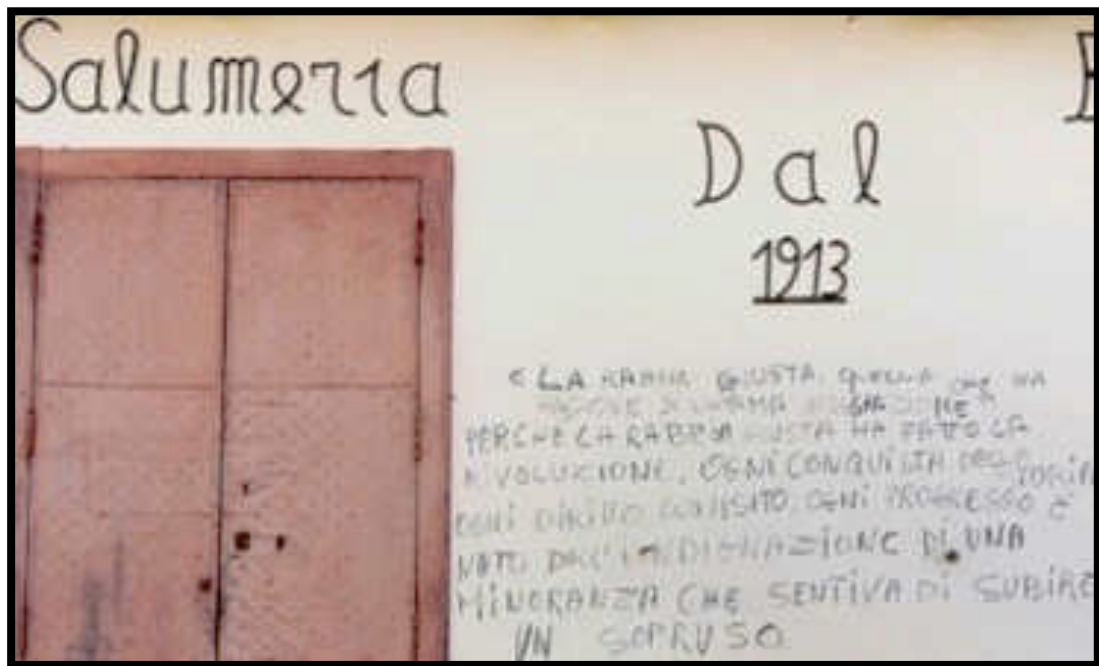 Salumeria
Dal
1913
< LA RABBIA GIUSTA QUELLA CHE HA
PERCHE LA RABBIA GIUSTA HA FATTO LA
RIVOLUZIONE, OGNI CONQUISTA
OGNI DIRITTO OGNI PROGRESSO È
NATO DALL'INDIGNAZIONE DI UNA
MINORANZA CHE SENTIVA DI SUBIRE
UN SOPRUSO